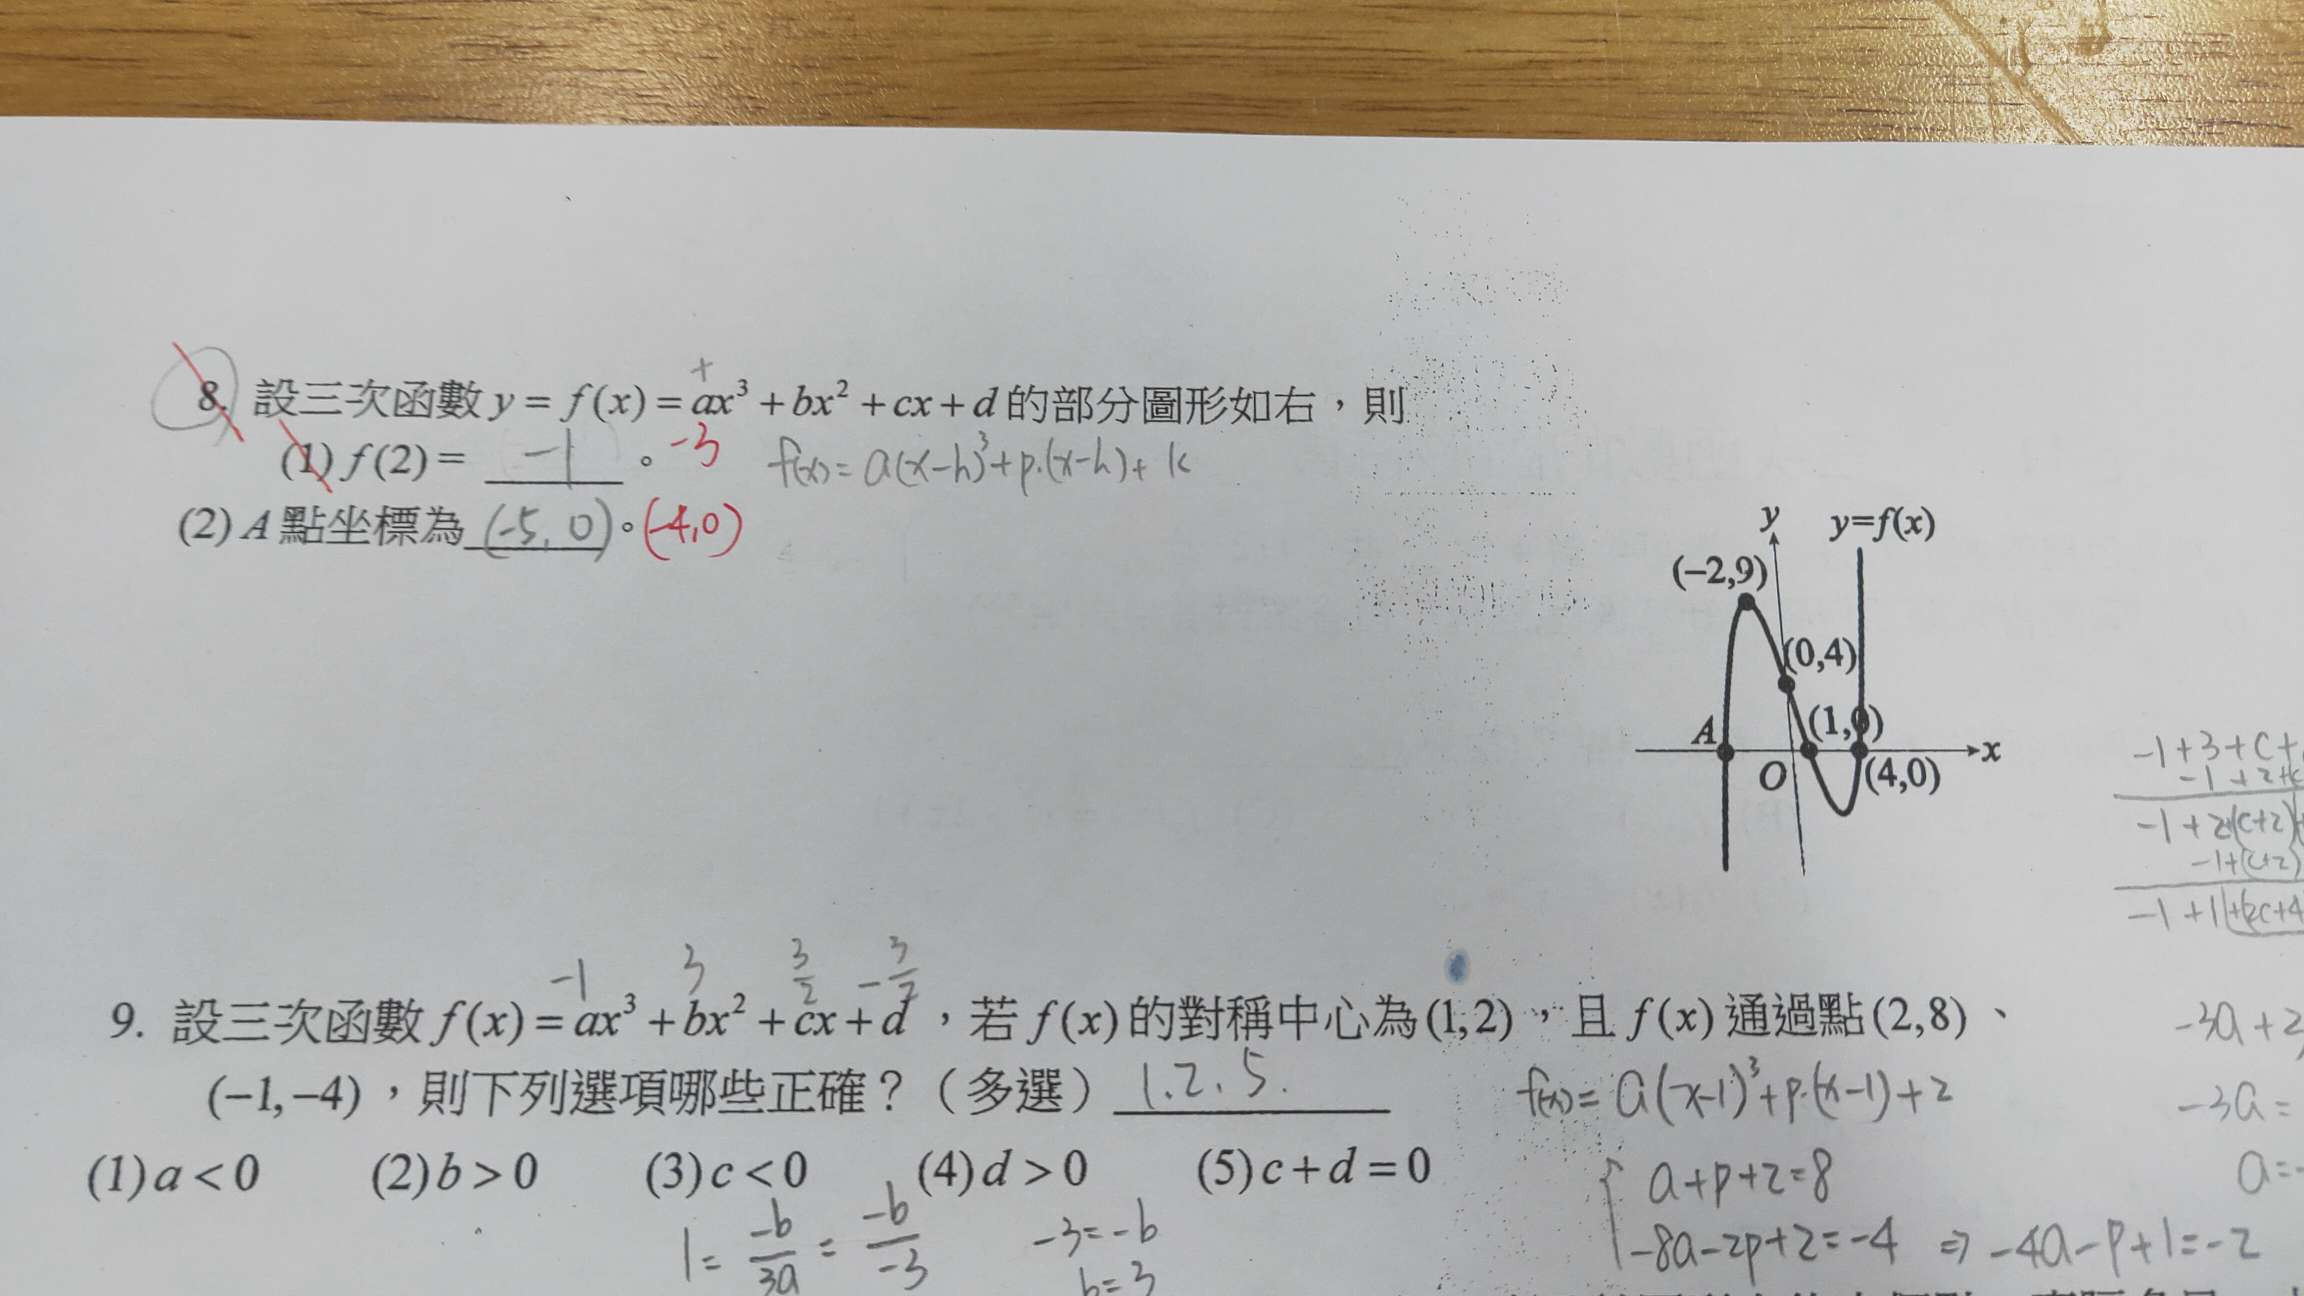 +
8. 設三次函數 y = f(x) = ax³ + bx² + cx + d 的部分圖形如右,則
(1) f(2) = -1 。 -3 f(x) = a(x-h)³+p.(x-h)+k
(2) A 點坐標為 (-5, 0) 。 (-4,0)
y y=f(x)
(-2,9)
(0,4)
A (1,0)
O (4,0) x
-1+3+c+
-1+2+c
-1+2+(c+2)
-1+(c+2)
-1+1+(2c+4
-1 3 3/2 -3/2
9. 設三次函數 f(x) = ax³ + bx² + cx + d ,若 f(x) 的對稱中心為 (1,2) ,且 f(x) 通過點 (2,8) 、
-3a+2
(−1,−4) ,則下列選項哪些正確?(多選) 1.2.5. f(x)= a(x-1)³+p.(x-1)+2
-3a=
(1) a < 0 (2) b > 0 (3) c < 0 (4) d > 0 (5) c + d = 0
a+p+2=8
a=-
1 = -b/3a = -b/-3 -3=-b
-8a-2p+2=-4 ⇒ -4a-p+1=-2
b=3